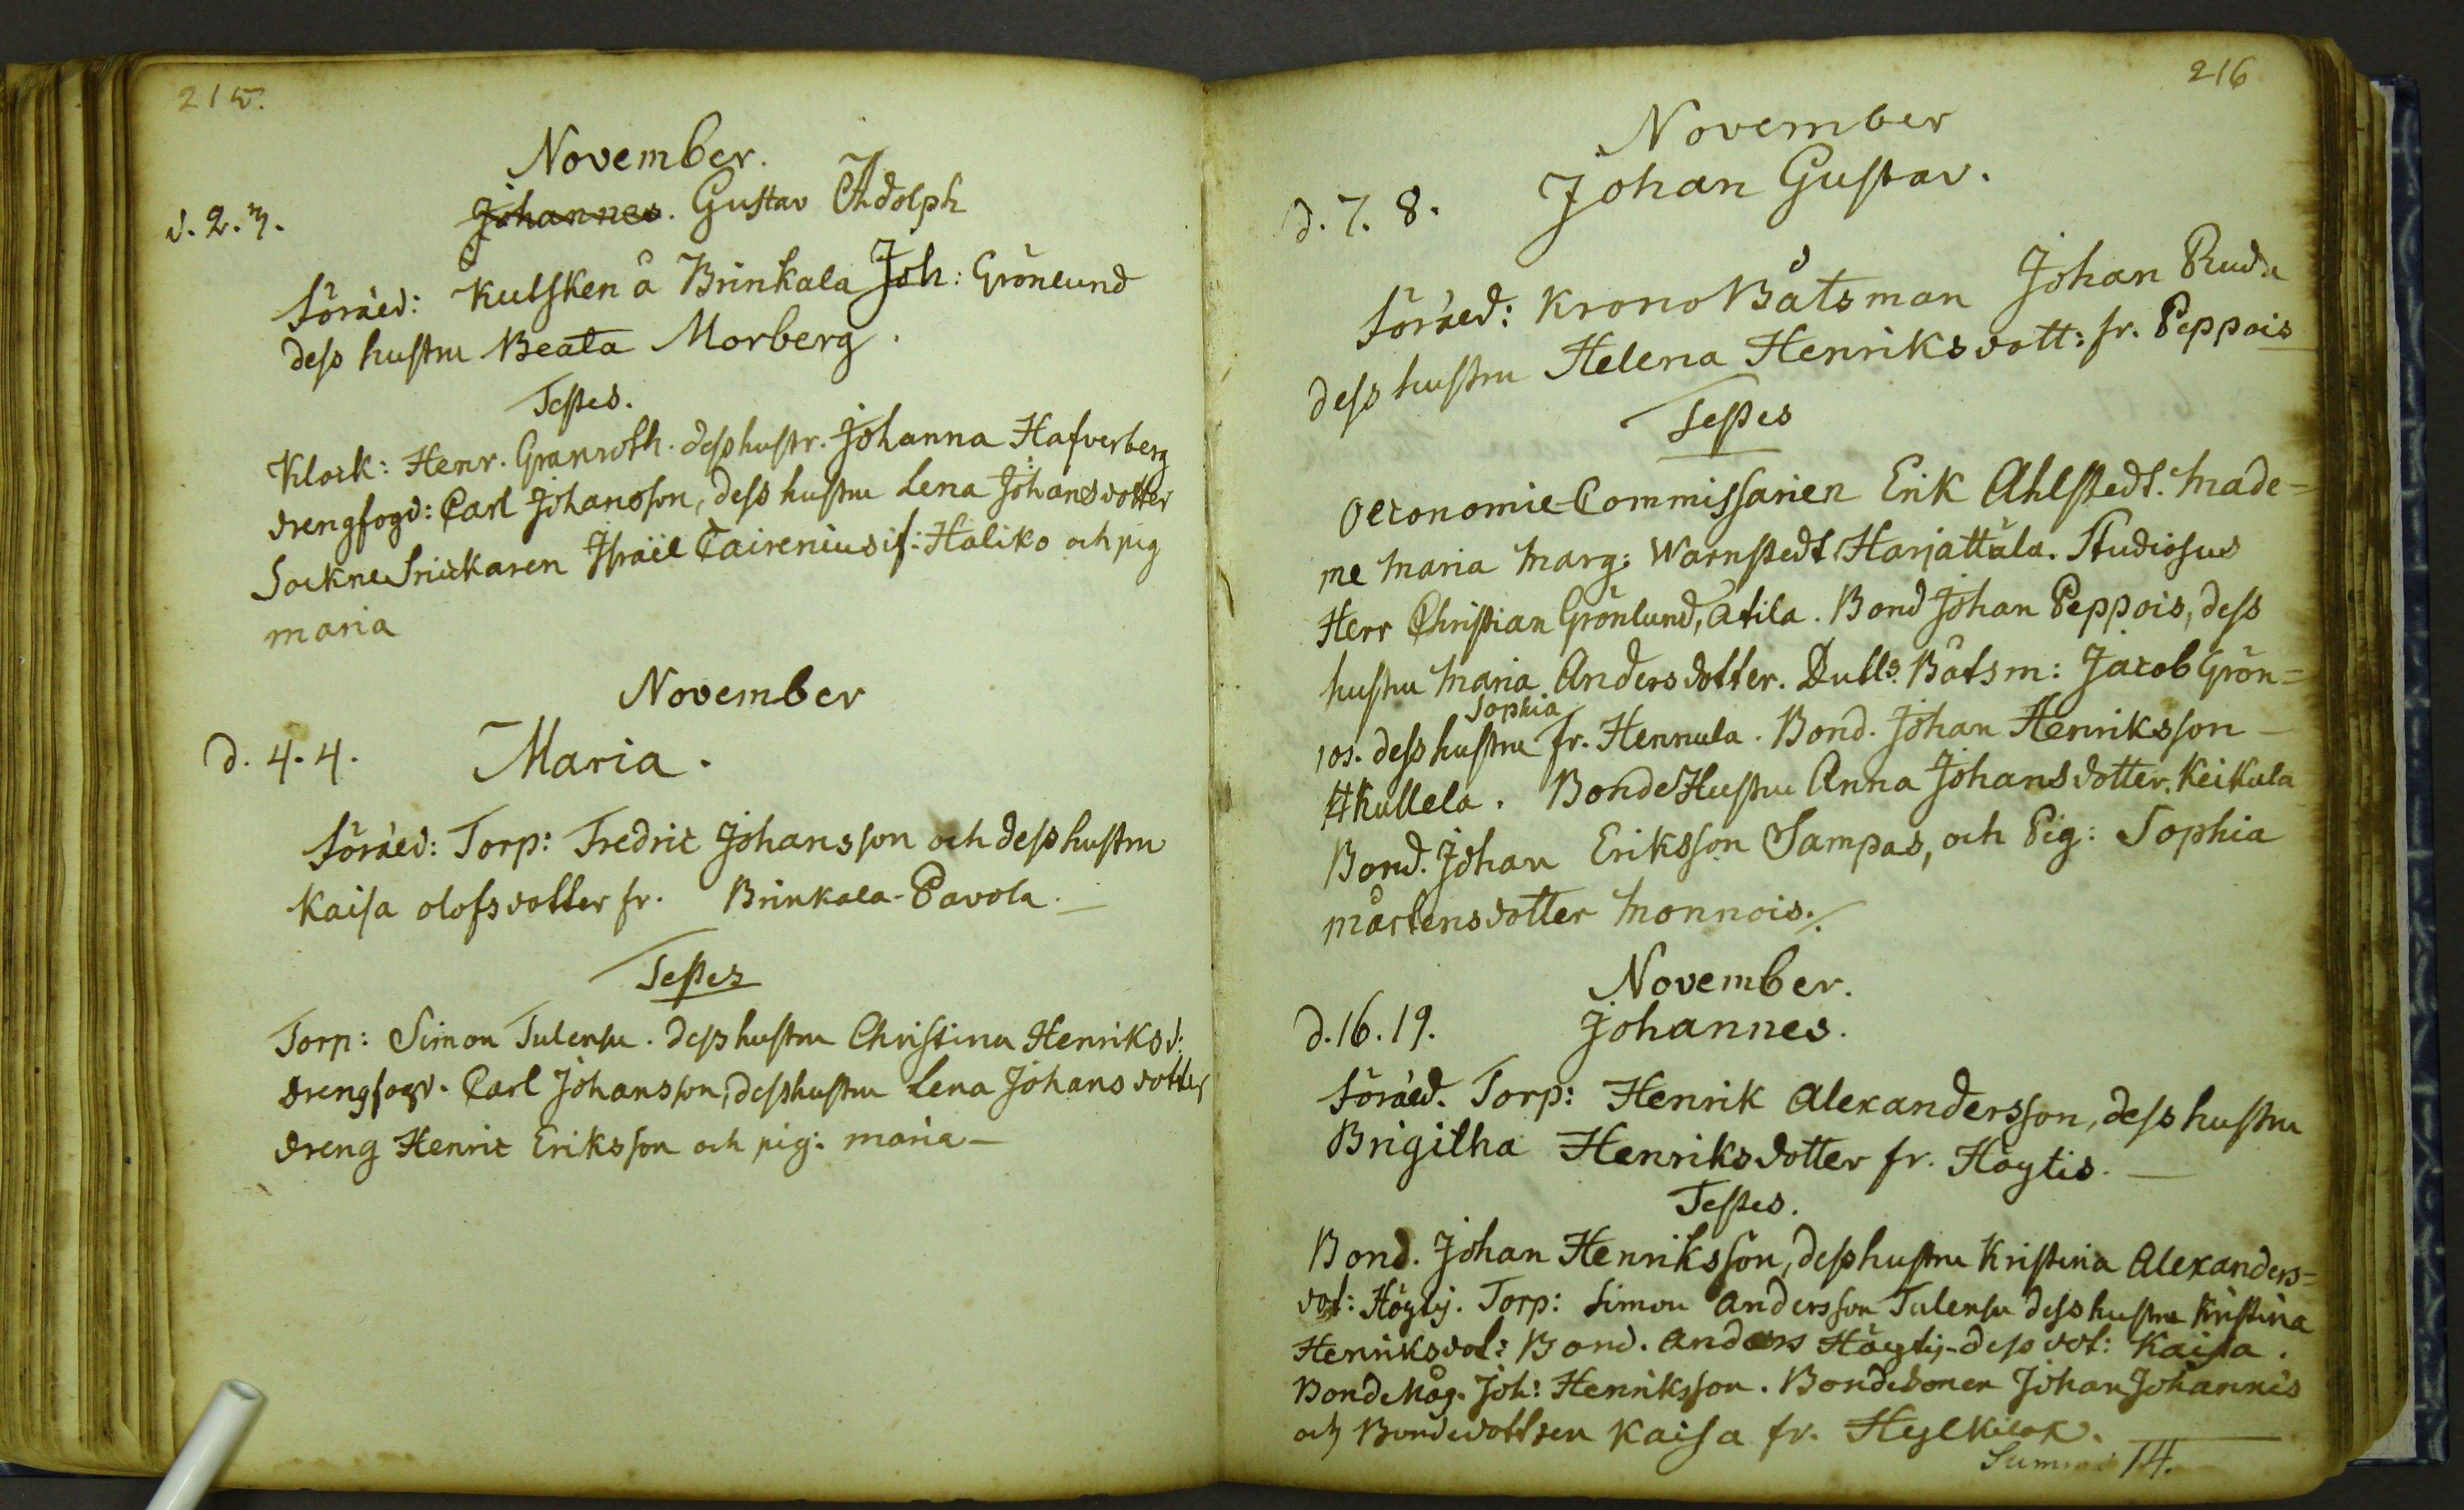 215.
November.
d. 2. 3.
Johannes. Gustav Adolph
föräld: Kutsken å Brinkala Joh: Grönlund
dess hustru Beata Morberg.
Testes.
Klock: Henr. Granroth. dess hustr. Johanna Hafverberg
drengfogd: Carl Johansson, dess hustru Lena Johansdotter
Sockne Snickaren Israël Caireniusif: Haliko och pig
maria
November
d. 4. 4. Maria.
föräld: Torp: Fredric Johansson och dess hustru
Kaisa olofsdotter fr. Brinkala-Pavola.
Testes
Torp: Simon Tulensu. dess hustru Christina Henriksd:
drengfogd. Carl Johansson, dess hustru Lena Johansdotter
dreng Henric Eriksson och pig: maria
216
November
d. 7. 8. Johan Gustav.
föräld: Krono Båtsman Johan Ruda
dess hustru Helena Henriksdott: fr. Peppois
Testes
Oeconomie-Commissarien Erik Ahlstedt. Made=
me Maria Marg: Warnstedt Harjattula. Studiosus
Herr Christian Grönlund, Atila. Bond Johan Peppois, dess
hustru Maria Andersdotter. Dubls. Båtsm: Jacob Grön=
ros. dess hustru Sophia fr. Hennula. Bond. Johan Henriksson
Kullela. Bonde Hustru Anna Johansdotter. Keikula
Bond. Johan Eriksson Sampas, och Pig: Sophia
mårtensdotter Monnois.
November.
d. 16. 19. Johannes.
föräld. Torp: Henrik Alexandersson, dess hustru
Brigitha Henriksdotter fr. Höytis.
Testes.
Bond. Johan Henriksson, dess hustru Kristina Alexanders=
dot: Höytis. Torp: Simon Andersson Tulensu dess hustru Kristina
Henriksdot: Bond. Anders Höytis dess dot: Kaisa.
Bonde Måg. Joh: Henriksson. Bondesonen Johan Johannis
och Bondedottren Kaisa fr. Heylkilax.
Summa 14.